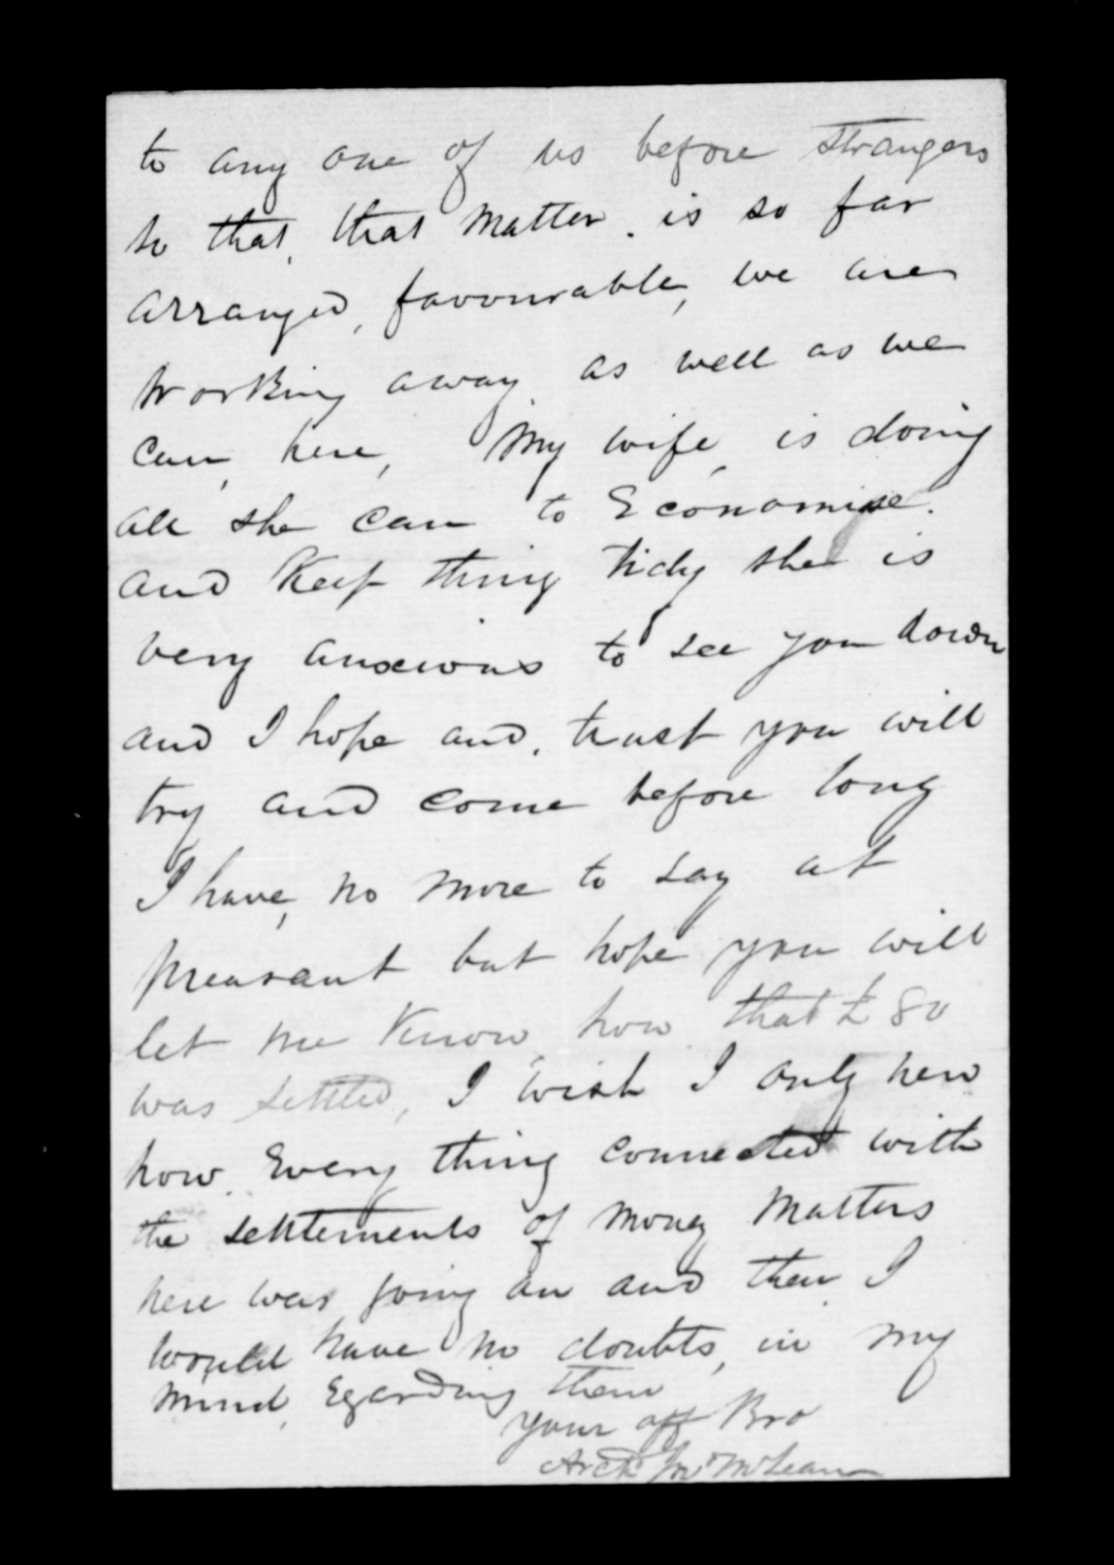 to any one of us before strangers
so that, that matter. is so far
arranged, favourable, we are
working away, as well as we
can, here, My wife, is doing
all she can to Economise.
and Keep thing tidy she is
very anxious to see you down
and I hope and. trust you will
try and come before long
I have, no more to say at
preasant but hope you will
let me Know how that £80
was settled, I wish I only new
how Every thing connected with
the settlements of money matters
here was going on and then I
would have no doubts, in my
mind, Egarding them
your aff Bro
Archd Jno McLean